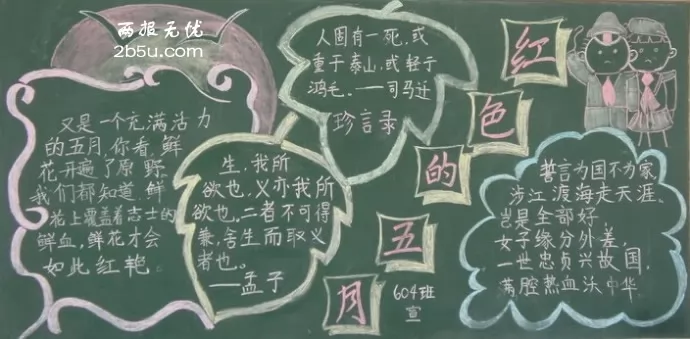 两报无忧
2b5u.com
又是一个充满活力
的五月,你看,鲜
花开遍了原野,
我们都知道,鲜
花上覆盖着志士的
鲜血,鲜花才会
如此红艳。
生,我所
欲也,义亦我所
欲也,二者不可得
兼,舍生而取义
者也。
——孟子
人固有一死,或
重于泰山,或轻于
鸿毛。——司马迁
珍言录
红
色
的
五
月
604班
宣
誓言为国不为家,
涉江渡海走天涯。
岂是全部好,
女子缘分外差,
一世忠贞兴故国,
满腔热血沃中华